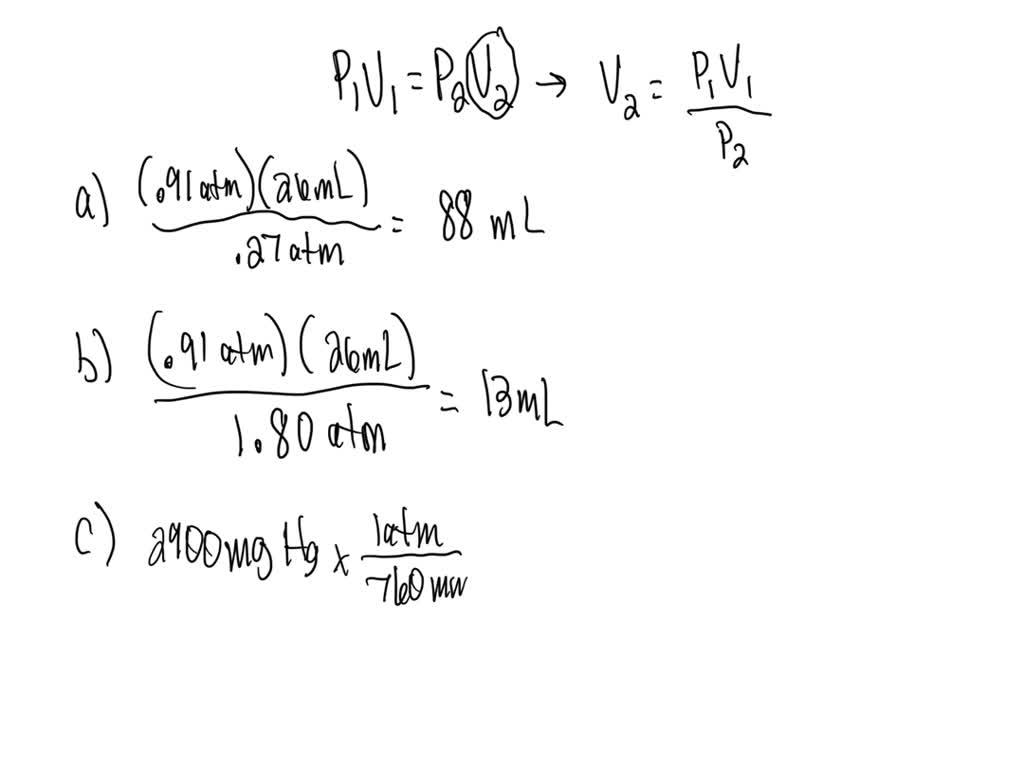 P₁V₁ = P₂V₂ → V₂ = P₁V₁ / P₂
a) (.91 atm)(26mL) / .27 atm = 88 mL
b) (.91 atm)(26mL) / 1.80 atm = 13mL
c) 2900 mg Hg x 1atm / 760 mm